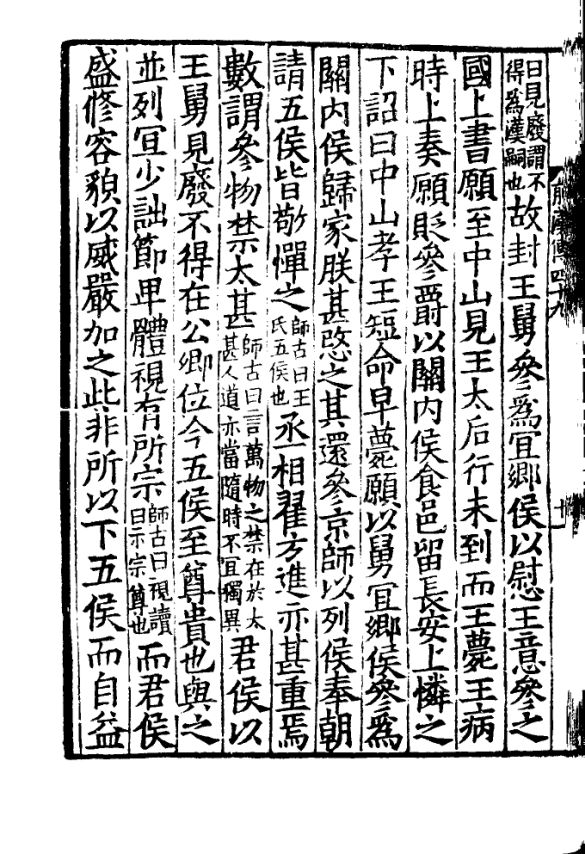 日見廢謂不得為漢嗣也故封王舅參爲宜鄉侯以慰王意參之
國上書願至中山見王太后行未到而王薨王病
時上奏願貶參爵以關内侯食邑留長安上憐之
下詔曰中山孝王短命早薨願以舅宜鄉侯參爲
關内侯歸家朕甚愍之其還參京師以列侯奉朝
請五侯皆敬憚之師古曰王氏五侯也丞相翟方進亦甚重焉
數謂參物禁太甚師古曰言萬物之禁在於太甚人道亦當隨時不宜獨異君侯以
王舅見廢不得在公卿位今五侯至尊貴也與之
並列宜少詘節卑體視有所宗師古曰視讀曰示宗尊也而君侯
盛修容貌以威嚴加之此非所以下五侯而自益